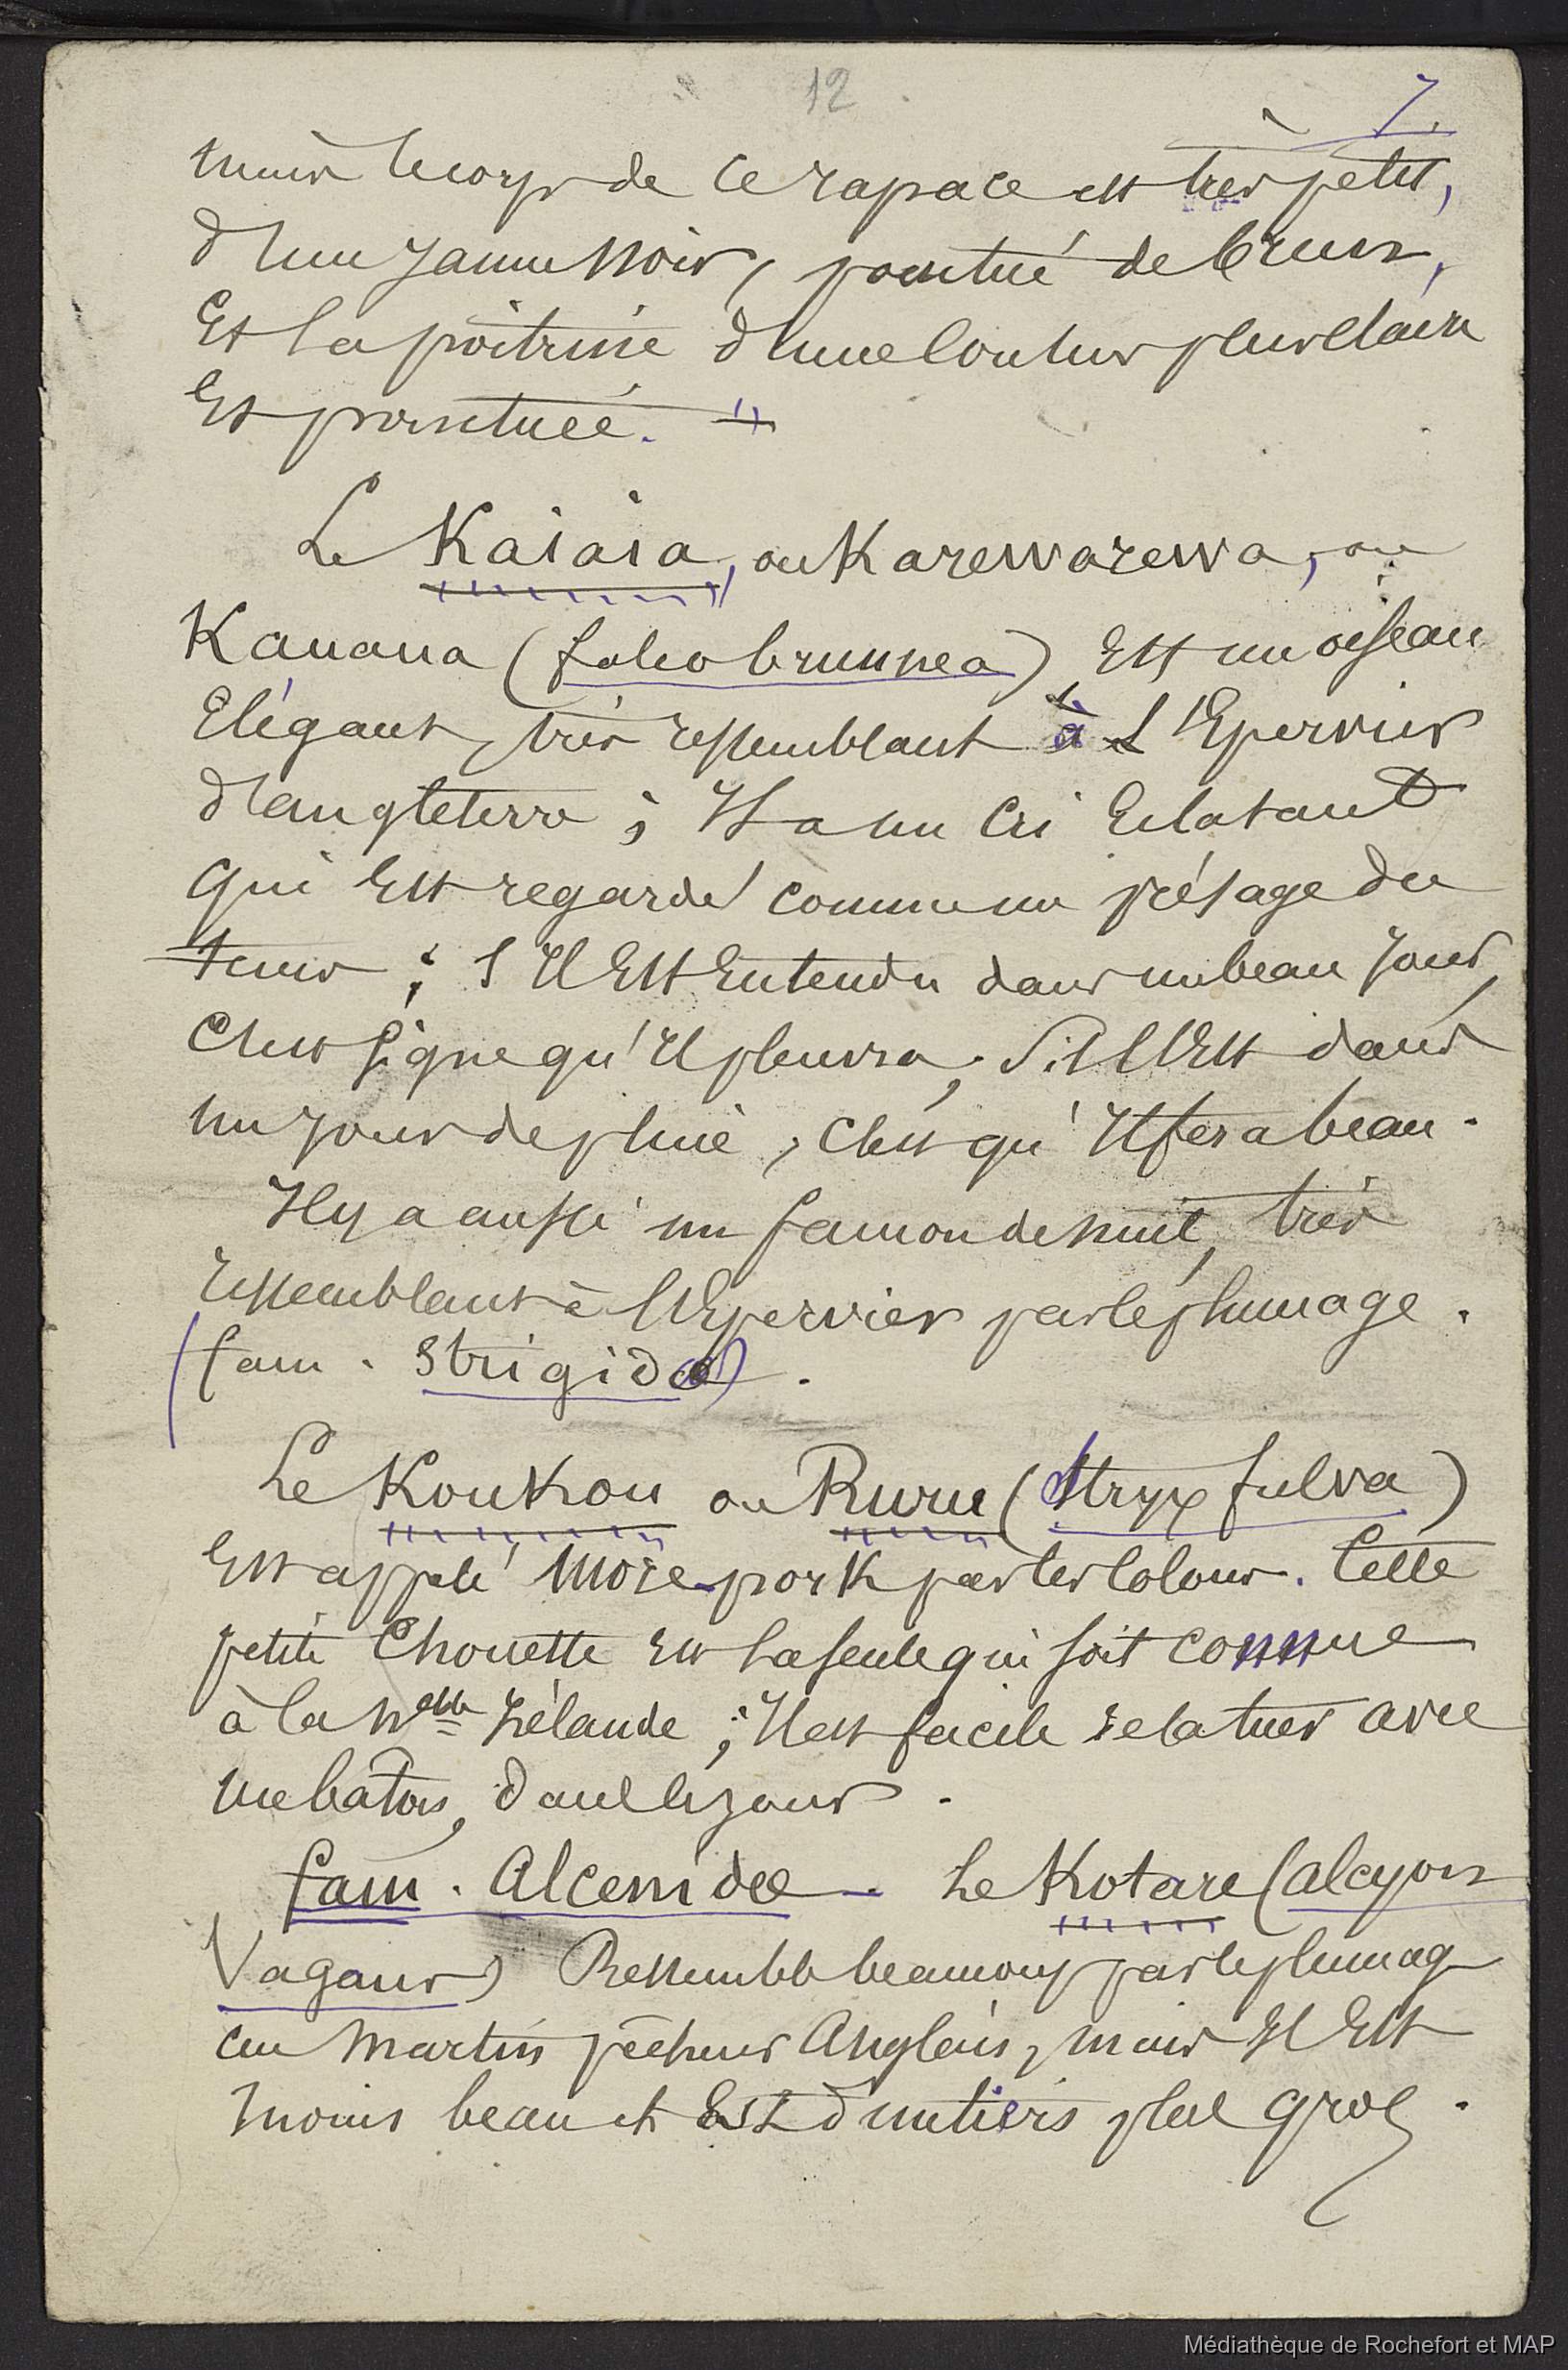 12
7.
mais le corps de ce rapace est très petit,
d'un jaune noir, pointué de brun,
Et la poitrine d'une couleur plus claire
Est pointuée.
Le Kaiaia, ou Karewarewa, ou
Kauaua (falco brunnea) Est un oiseau
Elégant, très ressemblant à l'Epervier
d'angleterre ; Il a un Cri Eclatant
qui Est regardé comme un présage du
tems ; s'Il Est Entendu dans un beau jour,
C'est signe qu'Il pleuvra, S'il l'Est dans
un jour de pluie, C'est qu'Il fera beau.
Il y a aussi un faucon de nuit, très
ressemblant à l'Epervier par le plumage.
(fam. Strigidæ).
Le Koukou ou Ruru (Stryx fulva)
Est appelé More-pork par les Colons. Cette
petite Chouette Est la seule qui soit connue
à la Nelle Zélande ; Il est facile de la tuer avec
un bâton, dans le jour.
fam. Alcenidæ - Le Kotare (alcyon
Vagans) Ressemble beaucoup par le plumage
au Martin pêcheur Anglais, mais Il Est
moins beau et Est d'un tiers plus gros.
Médiathèque de Rochefort et MAP